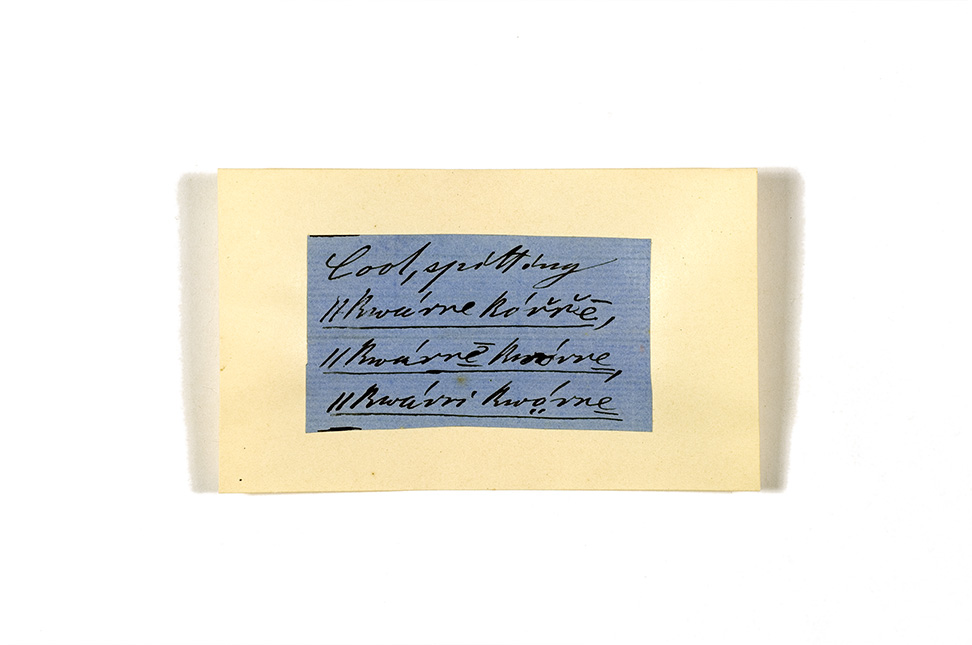 Cool, spitting
||kwárre kór̆r̆ē,
||kwárrē kwórre,
||kwárri kwọ̈́rre